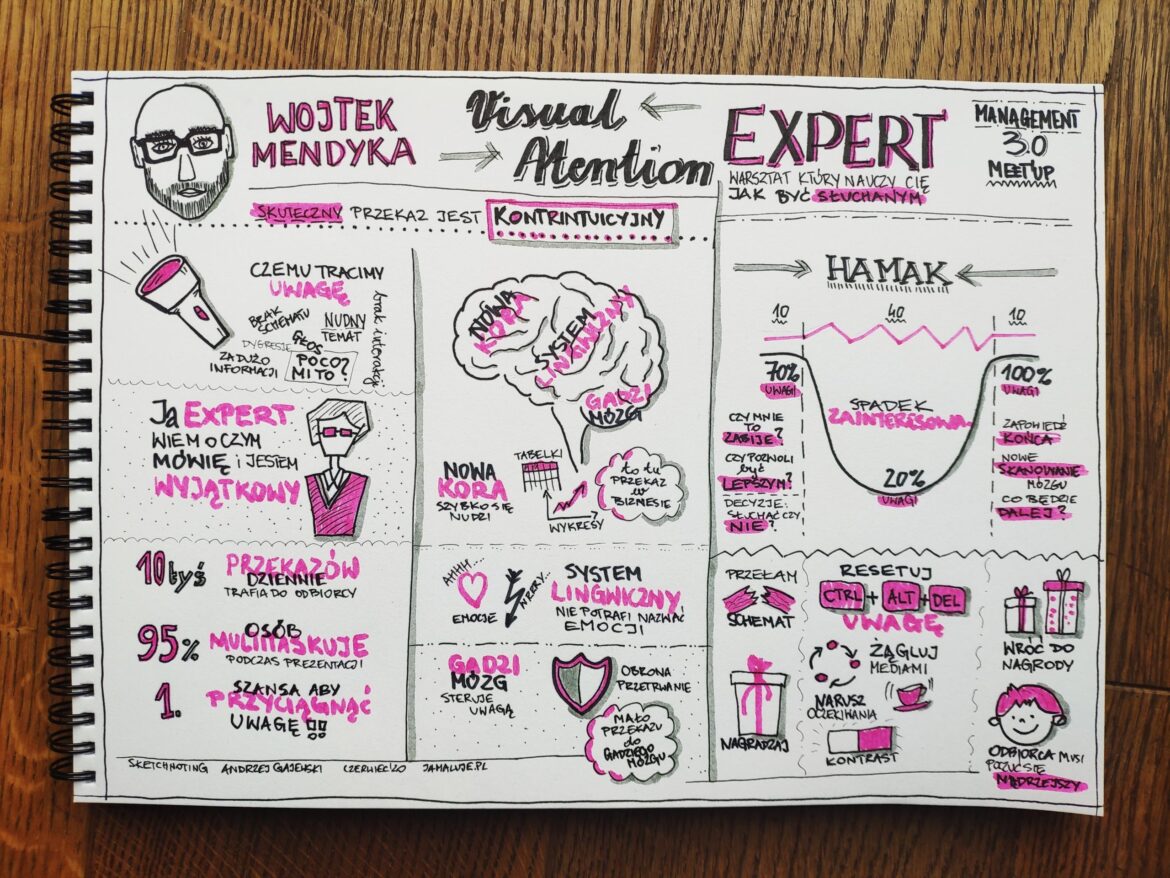 WOJTEK
MENDYKA
Visual
Atention
EXPERT
WARSZTAT KTÓRY NAUCZY CIĘ
JAK BYĆ SŁUCHANYM
MANAGEMENT
3.0
MEETUP
SKUTECZNY PRZEKAZ JEST KONTRINTUICYJNY
CZEMU TRACIMY
UWAGĘ
BRAK
SCHEMATU
NUDNY
TEMAT
DYGRESJE
GŁOS
ZA DUŻO
INFORMACJI
POCO?
MI TO?
brak interakcji
Ja EXPERT
WIEM O CZYM
MÓWIĘ i JESTEM
WYJĄTKOWY
10 tyś PRZEKAZÓW
DZIENNIE
TRAFIA DO ODBIORCY
95% OSÓB
MULITASKUJE
PODCZAS PREZENTACJI
1. SZANSA ABY
PRZYCIĄGNĄĆ
UWAGĘ !!
NOWA
KORA
SYSTEM
GADZI
MÓZG
NOWA
KORA
SZYBKO SIĘ
NUDZI
TABELKI
WYKRESY
to tu
PRZEKAZ
w
BIZNESIE
AHHH...
EMOCJE
SYSTEM
LINGWICZNY
NIE POTRAFI NAZWAĆ
EMOCJI
GADZI
MÓZG
STERUJE
UWAGĄ
OBRONA
PRZETRWANIE
MAŁO
PRZEKAZU
do
GADZIEGO
MÓZGU
HAMAK
10 40 10
70%
UWAGI
100%
UWAGI
SPADEK
ZAINTERESOWA.
20%
UWAGI
CZY MNIE
TO
ZABIJE?
CZY POZWOLI
być
LEPSZYM?
DECYZJE:
SŁUCHAĆ CZY
NIE?
ZAPOWIEDŹ
KOŃCA
NOWE
SKANOWANIE
MÓZGU
CO BĘDZIE
DALEJ?
PRZEŁAM
SCHEMAT
RESETUJ
CTRL + ALT + DEL
UWAGĘ
NAGRADZAJ
ŻĄGLUJ
MEDIAMI
NARUSZ
OCZEKIWANIA
KONTRAST
WRÓĆ DO
NAGRODY
ODBIORCA MUSI
POCZUĆ SIĘ
MĄDRZEJSZY
SKETCHNOTING ANDRZEJ GAJEWSKI CZERWIEC'20 JAMALUJE.PL